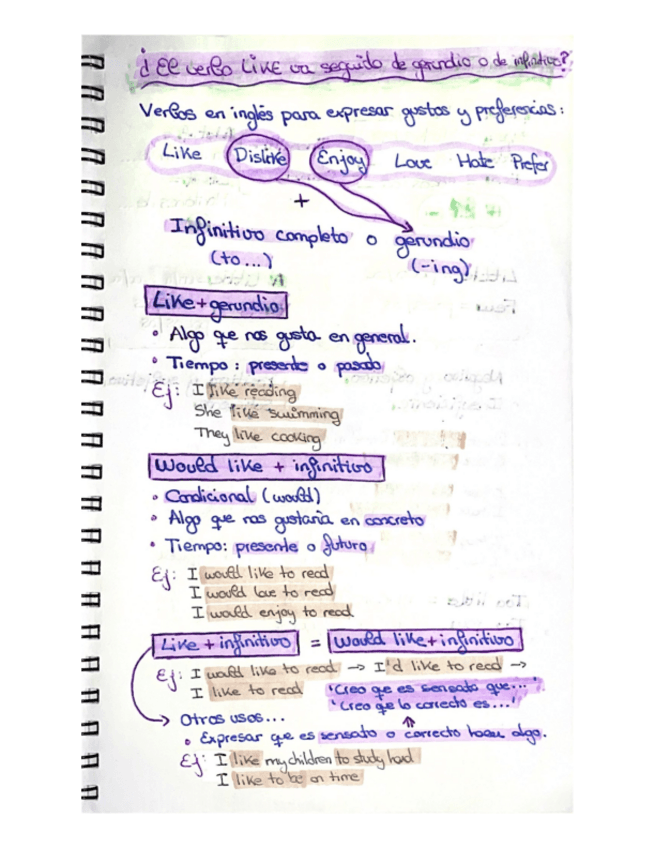 ¿El verbo LIKE va seguido de gerundio o de infinitivo?
Verbos en inglés para expresar gustos y preferencias:
Like Dislike Enjoy Love Hate Prefer
+
Infinitivo completo o gerundio
(to...) (-ing)
Like + gerundio
• Algo que nos gusta en general.
• Tiempo: presente o pasado
Ej: I like reading
She like swimming
They like cooking
Would like + infinitivo
• Condicional (would)
• Algo que nos gustaría en concreto
• Tiempo: presente o futuro
Ej: I would like to read
I would love to read
I would enjoy to read
Like + infinitivo = Would like + infinitivo
Ej: I would like to read → I'd like to read →
I like to read 'Creo que es sensato que...'
'Creo que lo correcto es...'
Otros usos...
• Expresar que es sensato o correcto hacer algo.
Ej: I like my children to study hard
I like to be on time